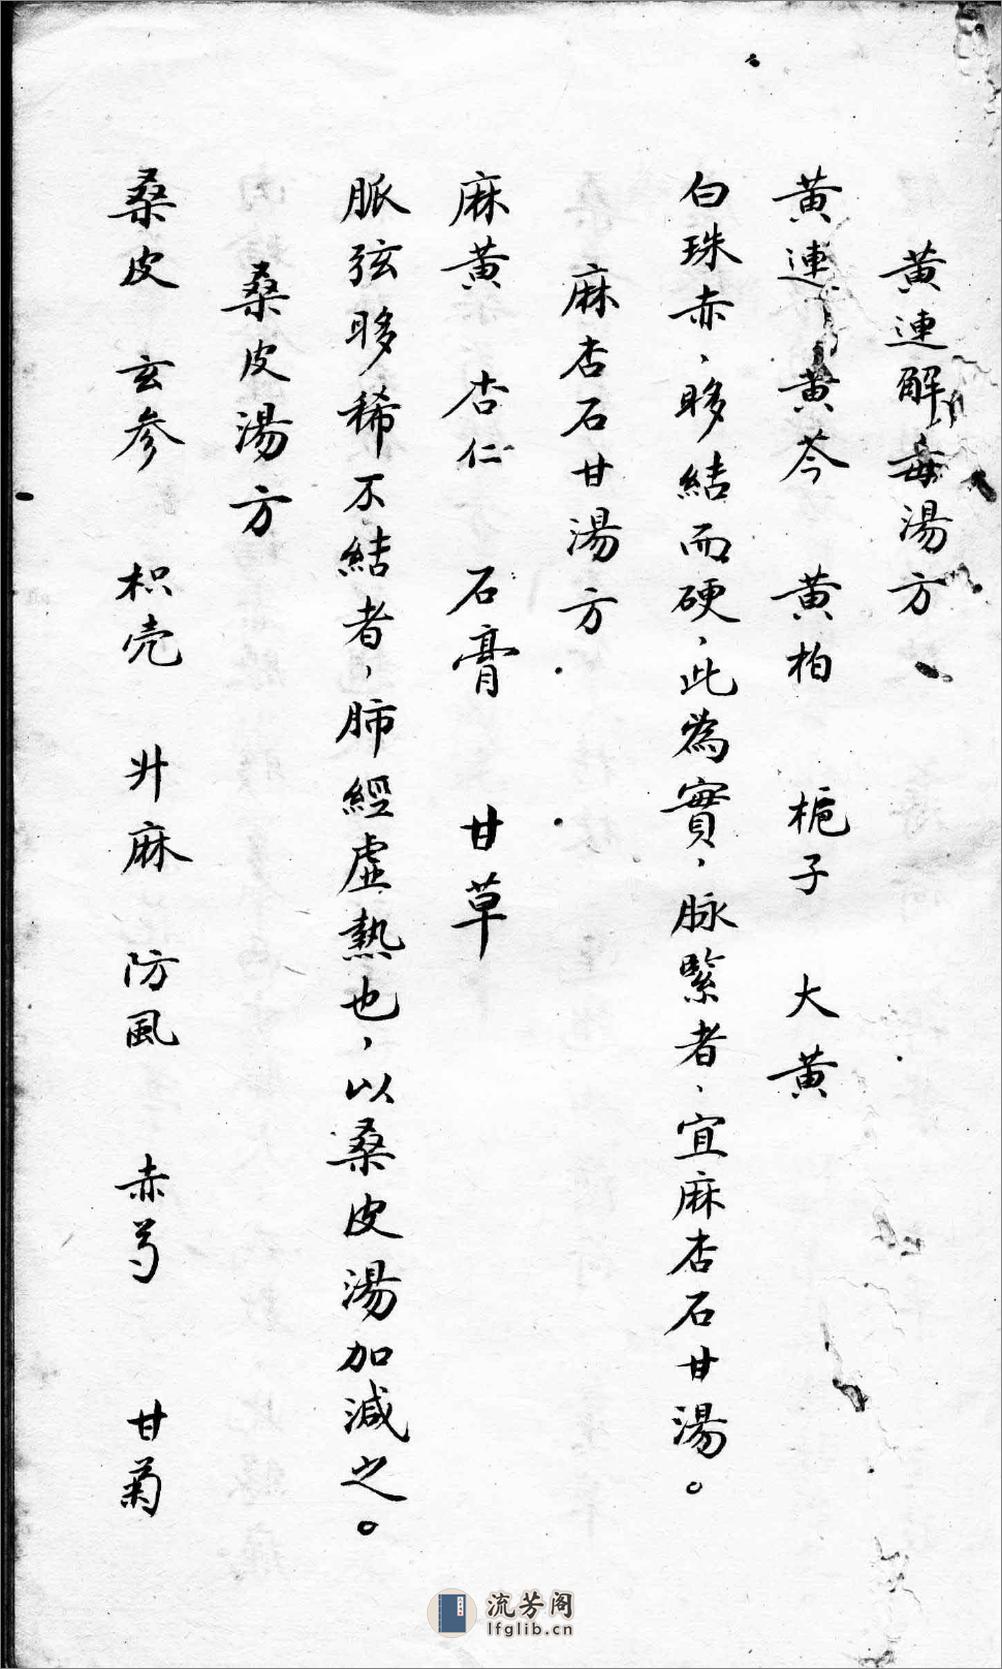 黃連解毒湯方
黃連　黃芩　黃柏　梔子　大黃
白珠赤，眵結而硬，此為實，脉緊者，宜麻杏石甘湯。
麻杏石甘湯方
麻黃　杏仁　石膏　甘草
脈弦眵稀不結者，肺經虛熱也，以桑皮湯加減之。
桑皮湯方
桑皮　玄参　枳壳　升麻　防風　赤芍　甘菊
流芳阁
lfglib.cn